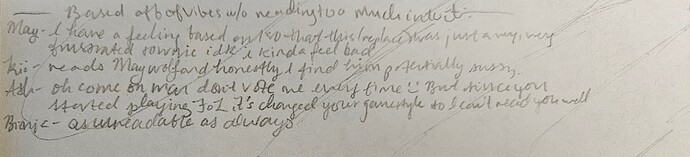 Based off of vibes w/o reading too much into it.
May - I have a feeling based on that this replace was just a very, very
frustrated townie idk i kinda feel bad
Kii - reads May wolf and honestly I find him potentially sussy.
Ash - oh come on man don't vote me every time :) But since you
started playing FoL it's changed your gamestyle so I can't read you well
- as unreadable as always